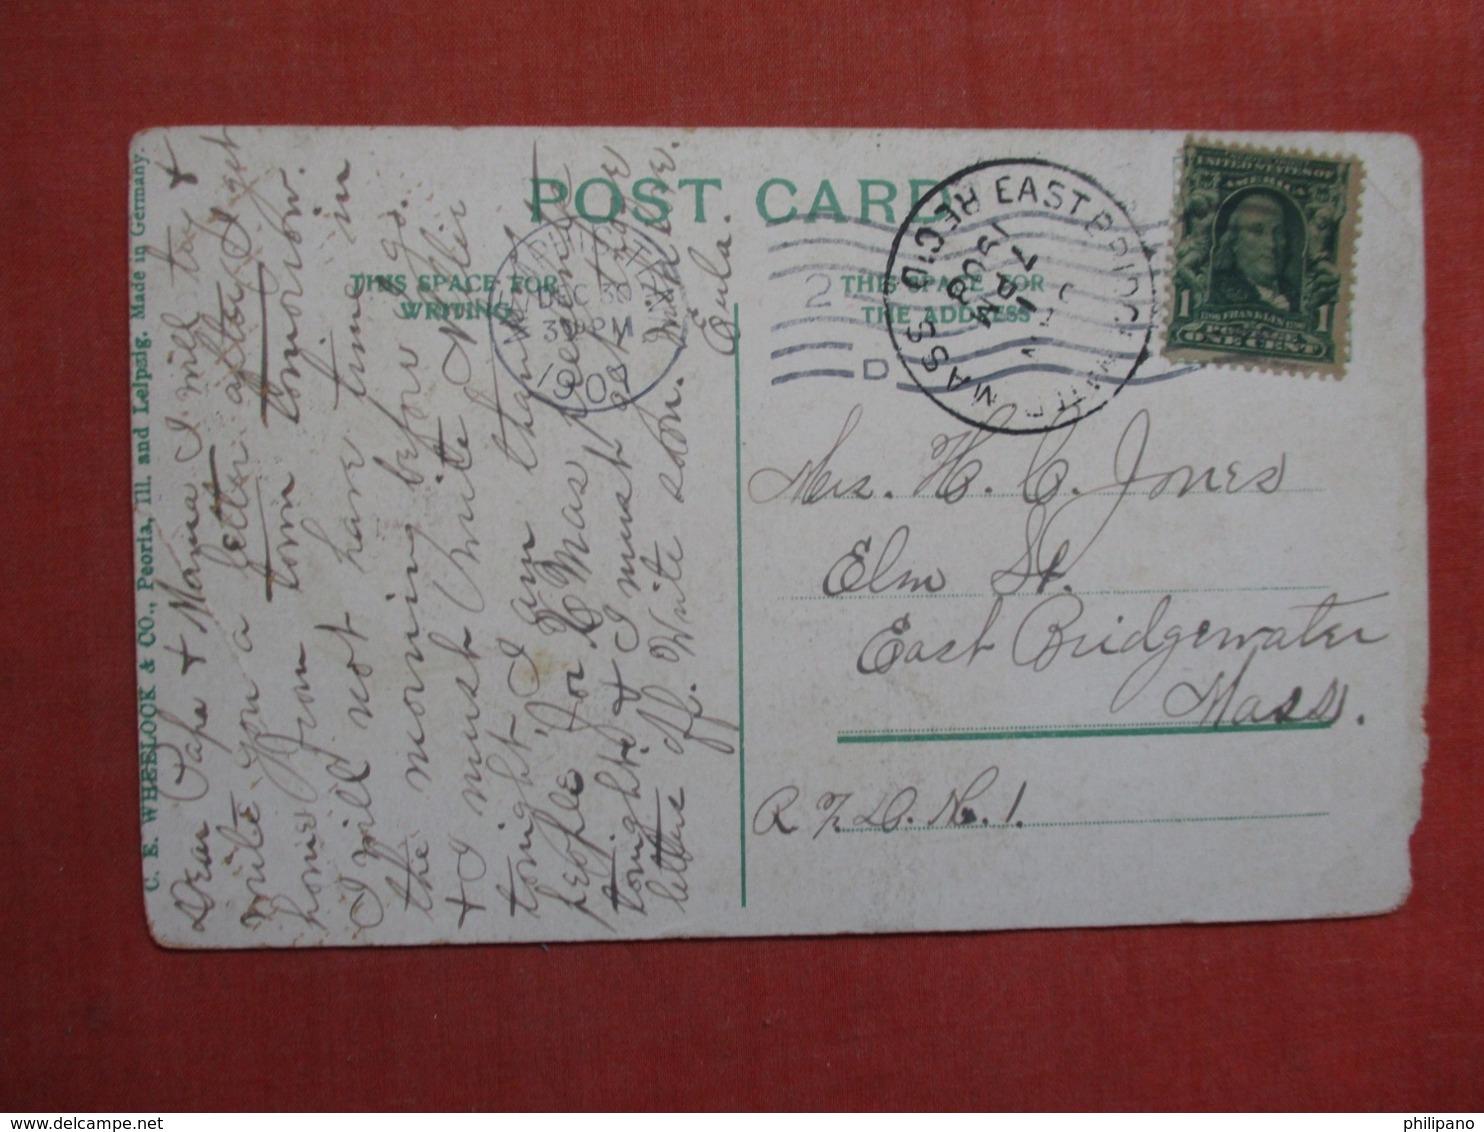 POST CARD
THIS SPACE FOR
WRITING
THIS SPACE FOR
THE ADDRESS
C. E. WHEELOCK & CO., Peoria, Ill. and Leipzig. Made in Germany.
Dear Papa & Mama I will try &
write you a letter after I get
home from town tomorrow.
I will not have time in
the morning before I go.
& I must write Nellie
tonight, I am thanking
people for C Mas
tonight & I must get those
letters off. Write soon. Mid love.
Eula.
DEC 30
3 30 PM
1908
2
D
EAST BRIDGEWATER MASS
REC'D
7 AM
1908
UNITED STATES OF
AMERICA
1 FRANKLIN 1
POSTAGE
ONE CENT
Mrs. H. C. Jones
Elm St.
East Bridgewater
Mass.
R. F. D. No. 1.
philipano